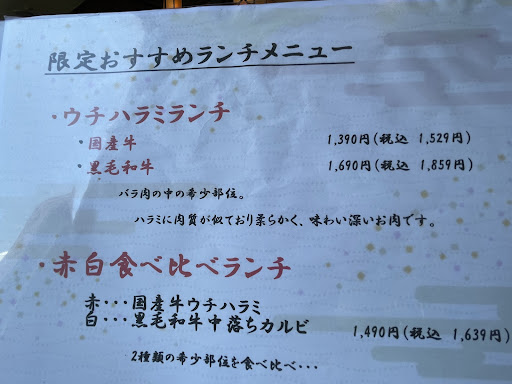 限定おすすめランチメニュー
・ウチハラミランチ
・国産牛 1,390円(税込 1,529円)
・黒毛和牛 1,690円(税込 1,859円)
バラ肉の中の希少部位。
ハラミに肉質が似ており柔らかく、味わい深いお肉です。
・赤白食べ比べランチ
赤・・・国産牛ウチハラミ
白・・・黒毛和牛中落ちカルビ 1,490円(税込 1,639円)
2種類の希少部位を食べ比べ・・・